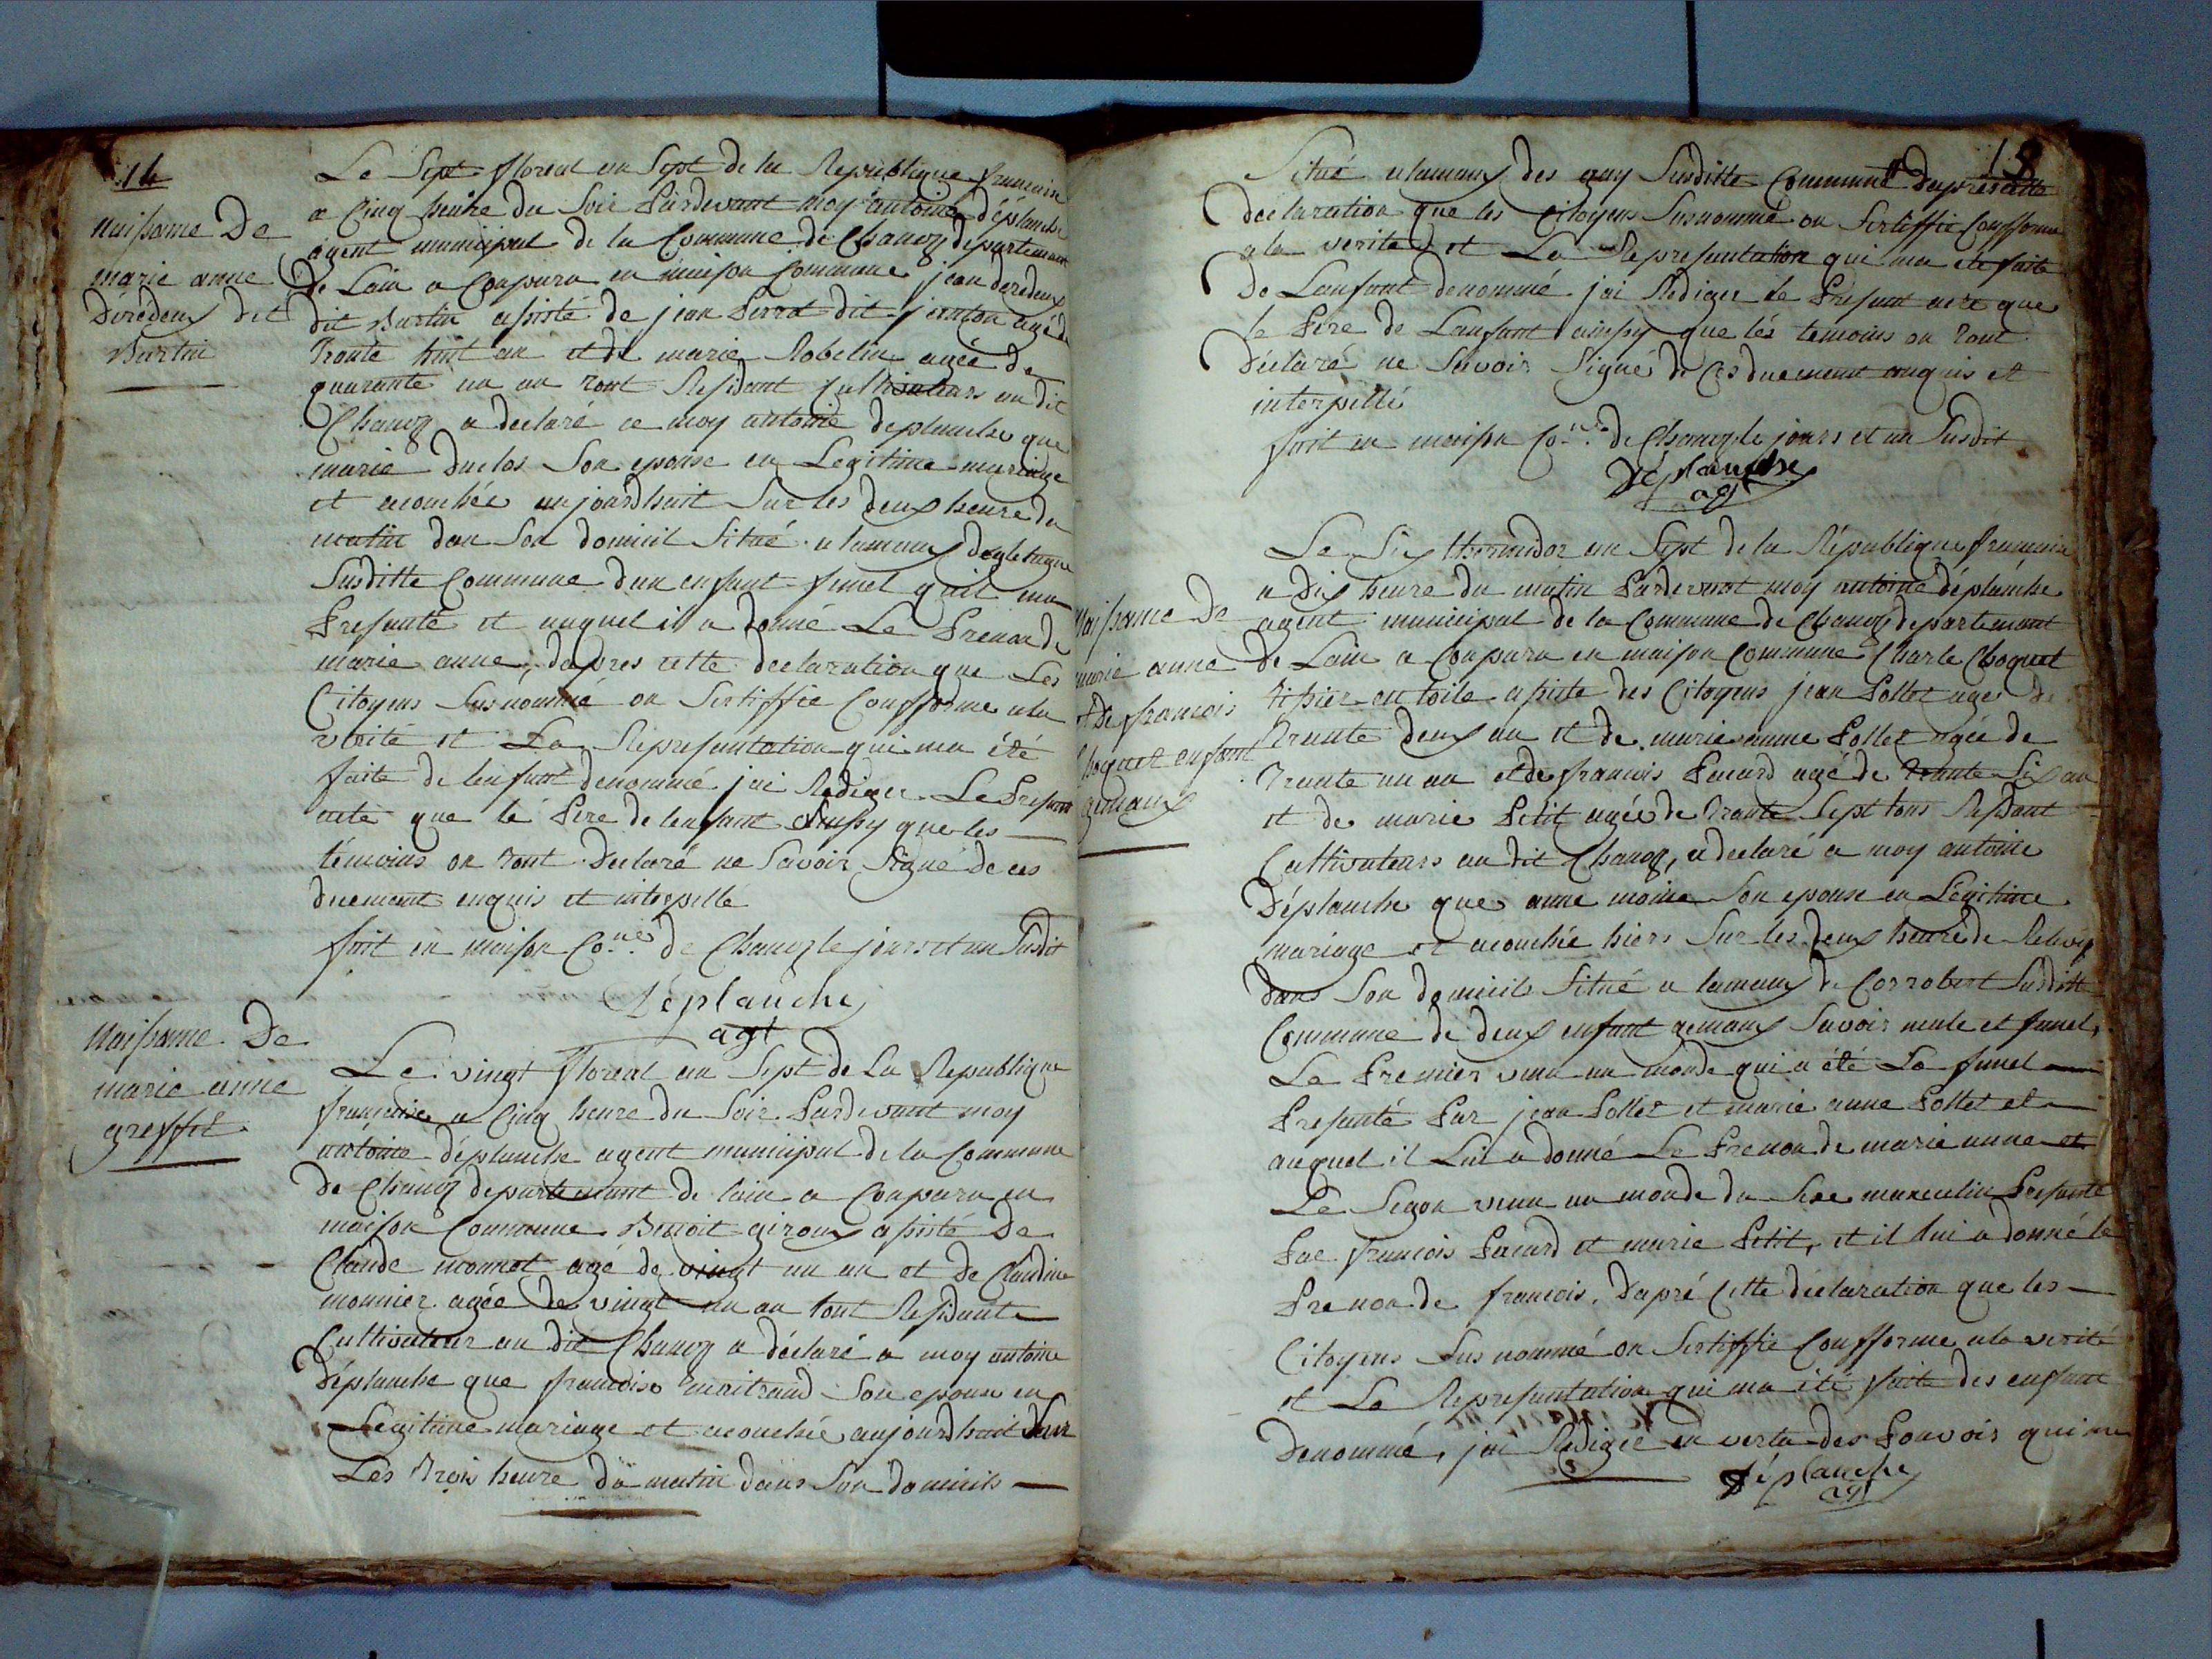 14
Naissance De
marie anne
Déredeux dit
Burtin
Le Sept floreal an Sept de la Republique francaise
a Cinq heure du Soir Pardevant moy antoine déplanche
agent municipal de la Commune de Chanoz departement
de Lain a Conparu en maison Commune jean deredeux
dit Burtin asisté de jean Perrot dit janton agé de
Trante huit an et de marie Robelin agée de
quarante un an tout Residant Cultivateurs au dit
Chanoz a declaré a moy antoine deplanche que
marie duclos Son epouse en Legitime mariage
et acouchée aujourdhuit Sur les deux heure du
matin dan Son domicil Situé a lamaux
Susditte Commune dun enfant femel quil ma
Presanté et auquel il a donné Le Prenon de
marie anne, dapres cette declaration que Les
Citoyens Susnommé on Sertiffie Confforme ala
vérité et La Represantation qui ma été
faite de lenfant denommé jai Rediger Le Presant
acte que le Pere de lenfant ainsy que les
témoins on tout Declaré ne Savoir Signé de ces
duemant enquis et interpellé
fait en maison Co.ne de Chanoz le jours et an Susdit
Déplanche
agt
Naissance De
marie anne
greffet
Le vingt floreal an Sept de La Republique
francaise a Cinq heure du Soir Pardevant moy
antoine déplanche agent municipal de la Commune
de Chanoz departemant de lain a Conparu en
maison Commune Benoit giroux asisté De
Claude monnet agé de vingt un an et de Claudine
monnier agée de vingt un an tout Residante
Cultivateur au dit Chanoz a déclaré a moy antoine
Déplanche que francoise Son epouse en
Légitime mariage et acouchée aujourdhuit Sur
Les Trois heure du matin dans Son domicils
18
Situé alamaux des Susditte Commune dapres cette
declaration que les Citoyens Susnommé on Sertiffie Confforme
a la verite et La Represantation qui ma été faite
De Lanfant denommé jai Rediger le Presant acte que
le Pere de Lanfant ainsy que les temoins on tout
déclaré ne Savoir Signé de Ces duemant anquis et
interpellé
fait en maison Co.ne de Chanoz le jours et an Susdit
Déplanche
agt
Naissance De
marie anne
et De francois
Choquet enfant
gemaux
Le Six thermidor an Sept de la République francaise
a Dix heure du matin Pardevant moy antoine déplanche
agent municipal de la Commune de Chanoz departemant
de Lain a Conparu en maison Commune Charle Choquet
tisier en toile asisté des Citoyens jean Pollet agé de
Trante deux an et de marie anne Pollet agée de
Trante un an et de francois Pacard agé de trante Six an
et de marie Petit agée de Trante Sept tous Resident
Cultivateurs au dit Chanoz, a declaré a moy antoine
Déplanche que anne moine Son epouse en Légitime
mariage et acouchée hiers Sur les deux heure de
dans Son domicils Situé a lamaux de Corrobert Susditte
Commune de deux enfant gemaux Savoir male et femel,
Le Premier venu au monde qui a été Le femel
Presanté Par jean Pollet et marie anne Pollet et
auquel il Lui a donné Le Prenon de marie anne et
Le Segon venu au monde du Sexe masculin Presanté
Par francois Pacard et marie Petit, et il lui a donné le
Prenon de francois, dapré Cette déclaration que les
Citoyens Susnommé on Sertiffie Confforme ala verité
et La Represantation qui ma été faite des enfant
Denommé, jai Rediger en vertu des Pouvoir qui me
Déplanche
agt